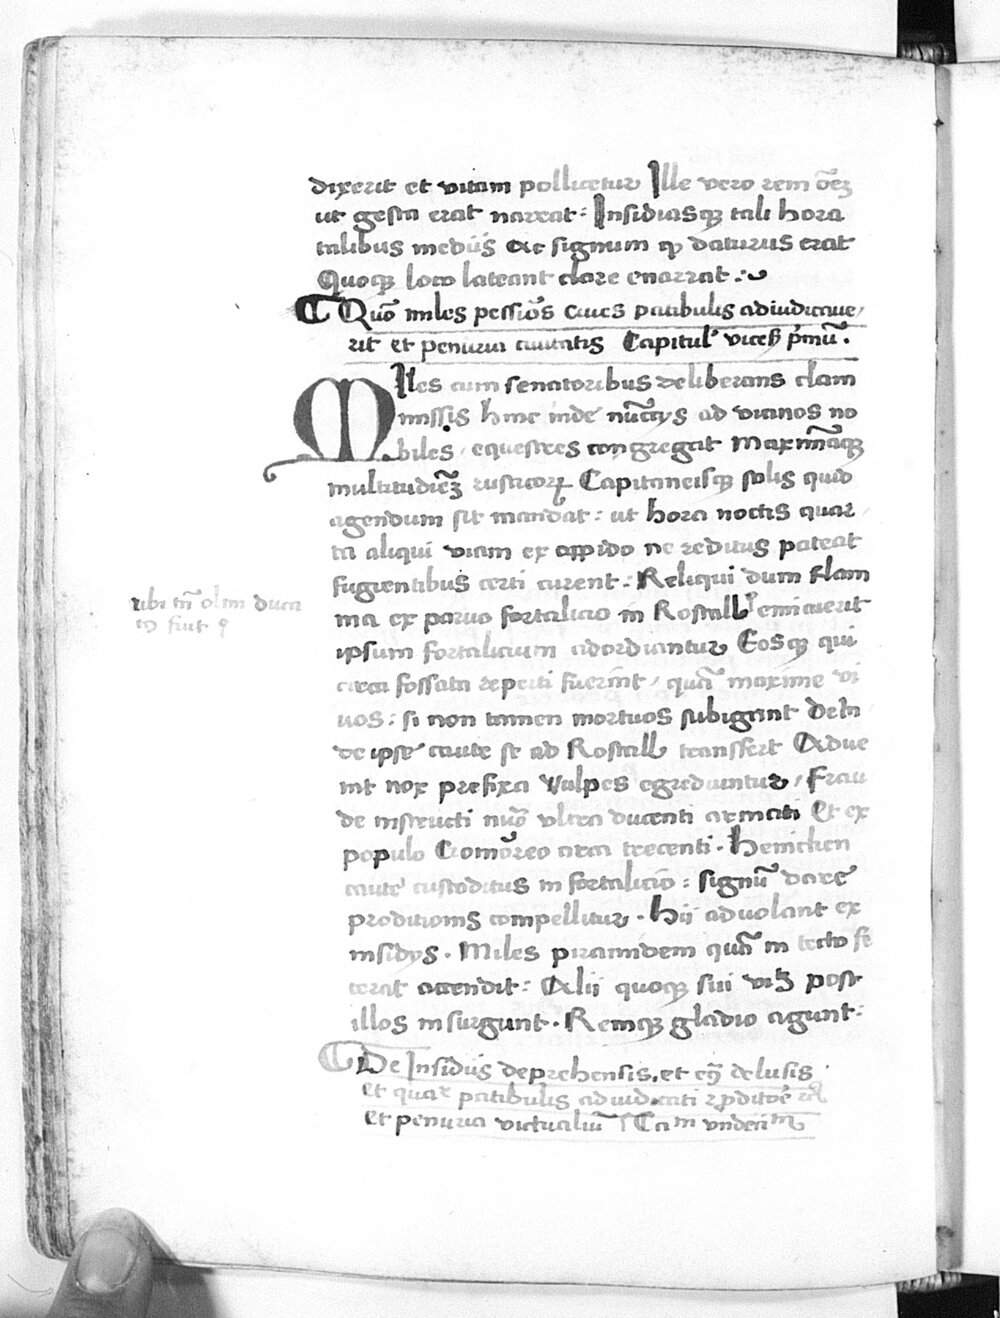 dixerit et vitam pollicetur Ille vero rem oēz
ut gesta erat narrat: Insidiasqꝫ tali hora
talibus mediis Ac signum qd daturus erat
Quoqꝫ loco lateant clare enarrat:
Quō miles pessiōs cives patibulis adiudicave
rit et penuria civitatis Capitulꝰ vicesi p'mū.
MIles cum senatoribus deliberans clam
missis hinc inde nūctijs ad vicinos no
biles, equestres congregat Maximāqꝫ
multitudiēꝫ rusticoꝝ Capitaneisqꝫ solis quid
agendum sit mandat: ut hora noctis quar
ta aliqui viam ex oppido ne reditus pateat
fugientibus certi curent: Reliqui dum flam
ma ex parvo fortalicio in Rostall emicuerit
ipsum fortalicium adordiantur Eosqꝫ qui
circa fossata reperti fuerint, quā maxime vi
vos: si non tamen mortuos subigant Dein
de ipse caute se ad Rostall transfert Adve
nit nox prefixa Vulpes egrediuntur, Frau
de instructi nūo ultra ducenti armati Et ex
populo Comōreo circa trecenti. Heinichen
caute custoditus in fortalicio: signū dare
proditionis compellitur. Hii advolant ex
insidijs. Miles piramidem quā in tecto fe
cerat accendit: Alii quoqꝫ sui post
illos insurgunt. Remqꝫ gladio agunt:
De Insidiis deprehensis, et delusis
et patibulis adiudicati
et penuria victualiū Cam
ubi olim duca
fiut